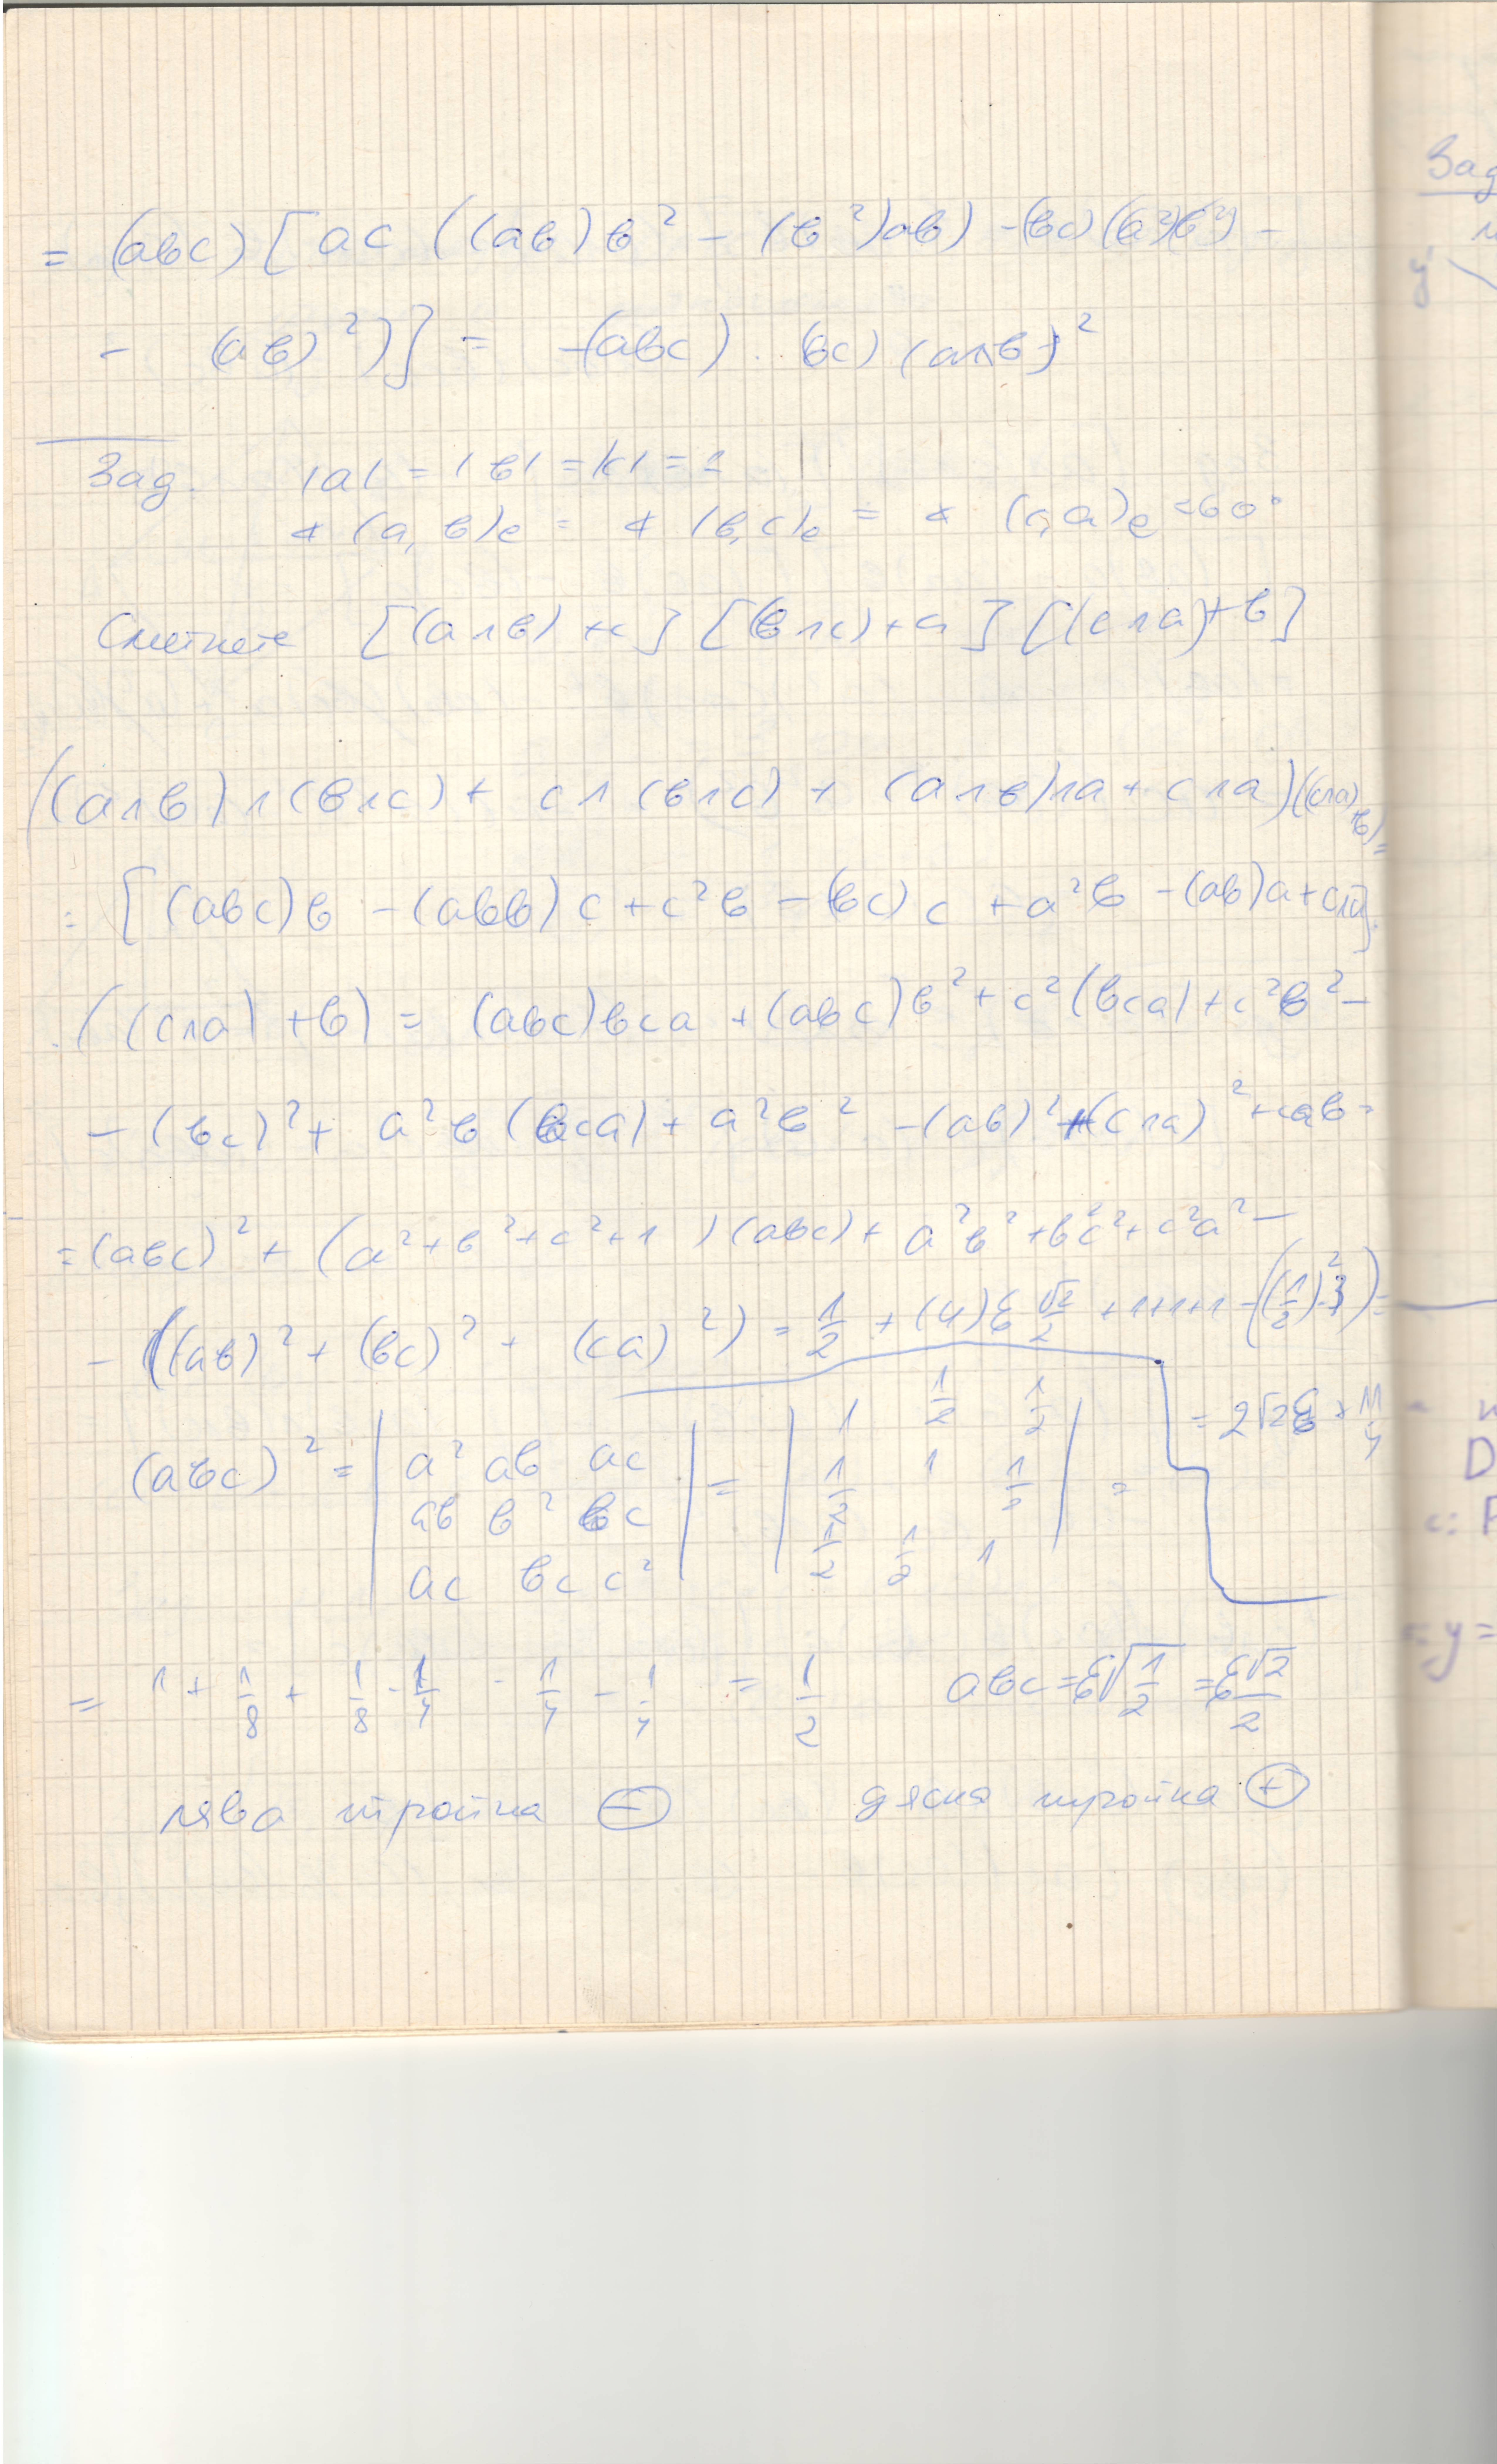 = (abc) [ac ((ab)b² - (b²)ab) - (bc)(a²)(b²) -
- (ab)²)] = -(abc) . (bc) (a∧b)²
Зад. |a| = |b| = |c| = 1
∢ (a, b)e = ∢ (b, c)e = ∢ (c, a)e = 60°
Сметнете [(a∧b) + c] [(b∧c) + a] [(c∧a) + b]
((a∧b)∧(b∧c) + c∧(b∧c) + (a∧b)∧a + c∧a)((c∧a)+b) =
= [(abc)b - (abb)c + c²b - (bc)c + a²b - (ab)a + c∧a].
.((c∧a) + b) = (abc)bca + (abc)b² + c²(bca) + c²b² -
- (bc)² + a²b(bca) + a²b² - (ab)² + (c∧a)² + cab =
= (abc)² + (a² + b² + c² + 1)(abc) + a²b² + b²c² + c²a² -
- ((ab)² + (bc)² + (ca)²) = 1/2 + (4)ε √2/2 + 1+1+1 - ((1/2)².3) =
= 2√2ε + 11/4
(abc)² = | a² ab ac | = | 1 1/2 1/2 | =
ab b² bc 1/2 1 1/2
ac bc c² 1/2 1/2 1
= 1 + 1/8 + 1/8 - 1/4 - 1/4 - 1/4 = 1/2 abc = ε√1/2 = ε√2/2
лява тройка ⊖ дясна тройка ⊕
Зад
y
D
= y =